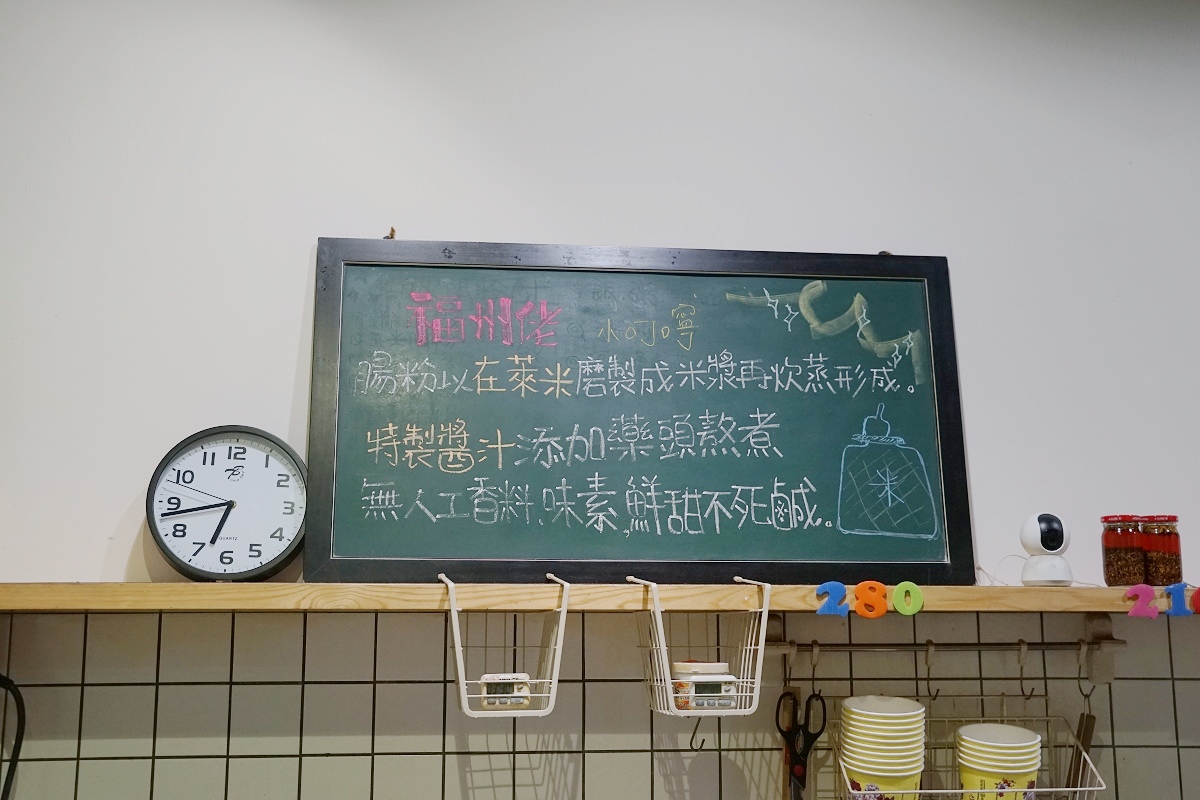 福州佬 小叮嚀
腸粉以在萊米磨製成米漿再炊蒸形成。
特製醬汁添加藥頭熬煮
無人工香料.味素,鮮甜不死鹹。
米
12
1
2
3
4
5
6
7
8
9
10
11
QUARTZ
280
210